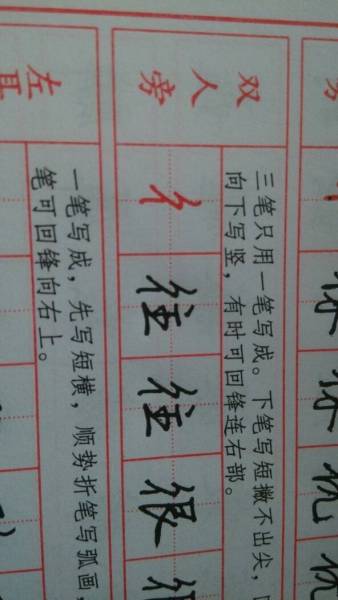 双人旁
三笔只用一笔写成。下笔写短撇不出尖，
向下写竖，有时可回锋连右部。
彳往往很
左
一笔写成，先写短横，顺势折笔写弧画，
笔可回锋向右上。